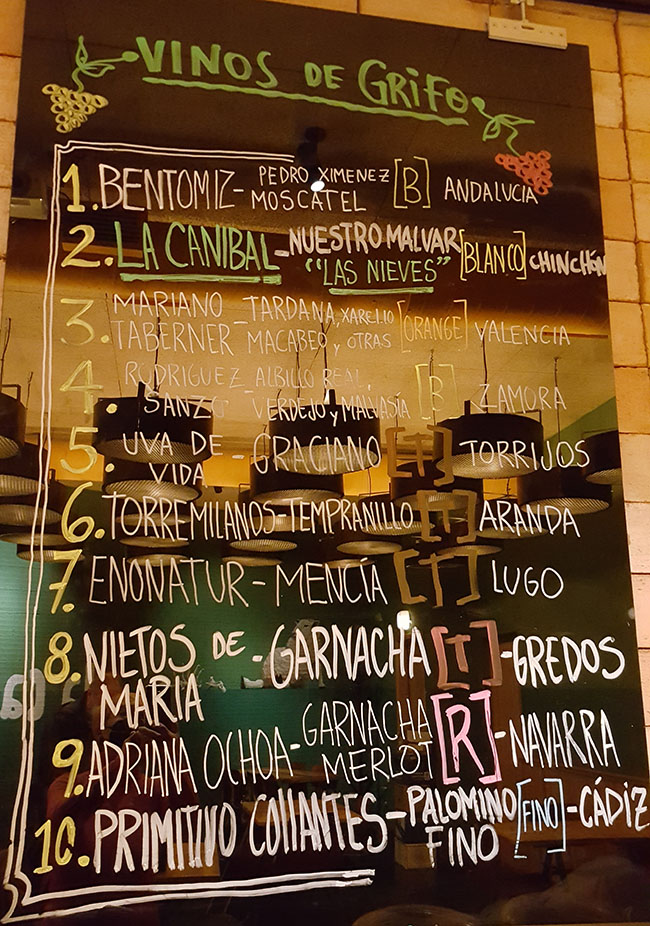 VINOS DE GRIFO
1. BENTOMIZ - PEDRO XIMENEZ MOSCATEL [B] ANDALUCIA
2. LA CANIBAL - NUESTRO MALVAR "LAS NIEVES" [BLANCO] CHINCHÓN
3. MARIANO TABERNER - TARDANA, XAREL·LO MACABEO y OTRAS [ORANGE] VALENCIA
4. RODRIGUEZ SANZO - ALBILLO REAL, VERDEJO y MALVASÍA [B] ZAMORA
5. UVA DE VIDA - GRACIANO [T] TORRIJOS
6. TORREMILANOS - TEMPRANILLO [T] ARANDA
7. ENONATUR - MENCÍA [T] LUGO
8. NIETOS DE MARIA - GARNACHA [T] - GREDOS
9. ADRIANA OCHOA - GARNACHA MERLOT [R] - NAVARRA
10. PRIMITIVO COLLANTES - PALOMINO FINO [FINO] - CÁDIZ